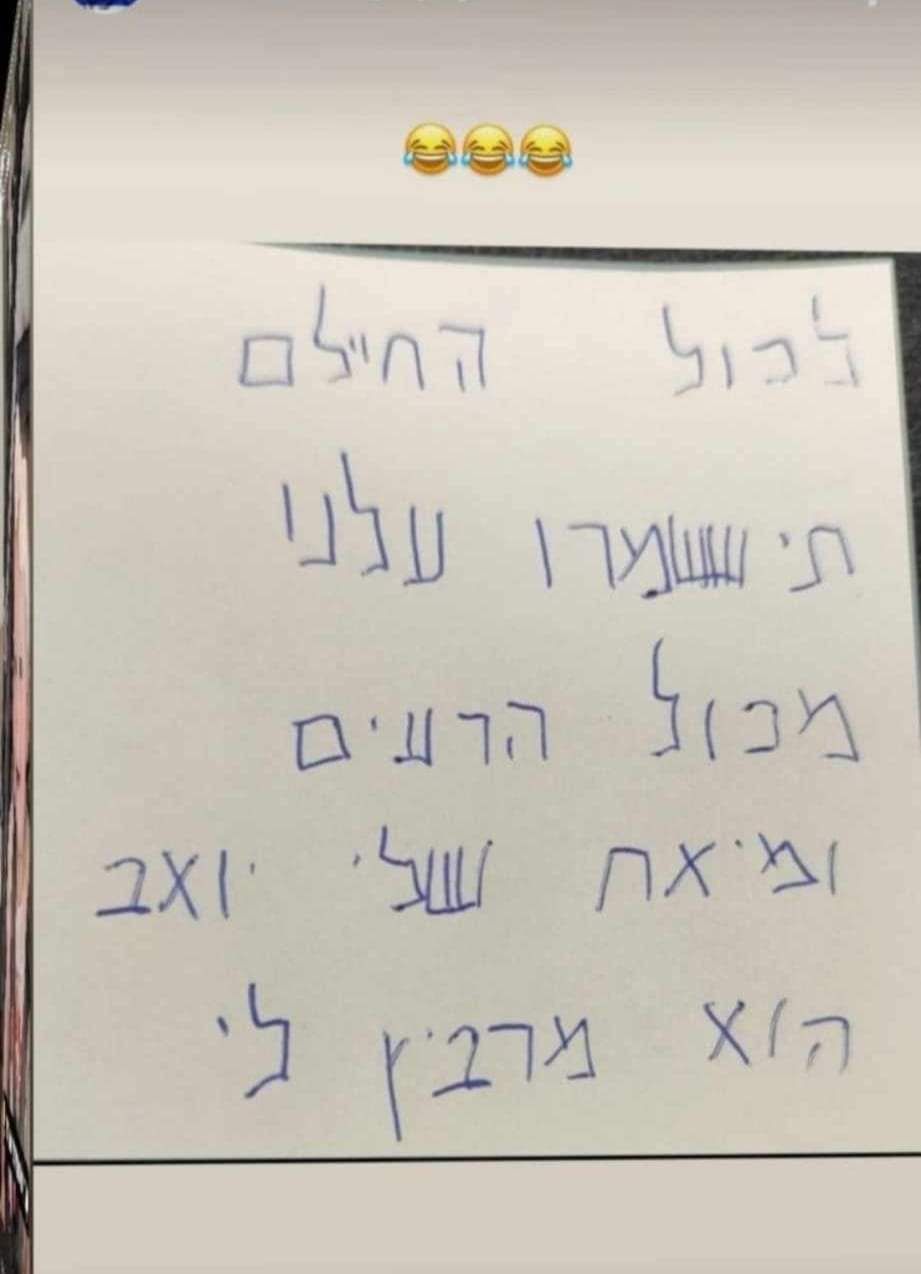 😂😂😂
לכול החיילם
תישמרו עלנו
מכול הרעים
ומיאח שלי יואב
הוא מרביץ לי